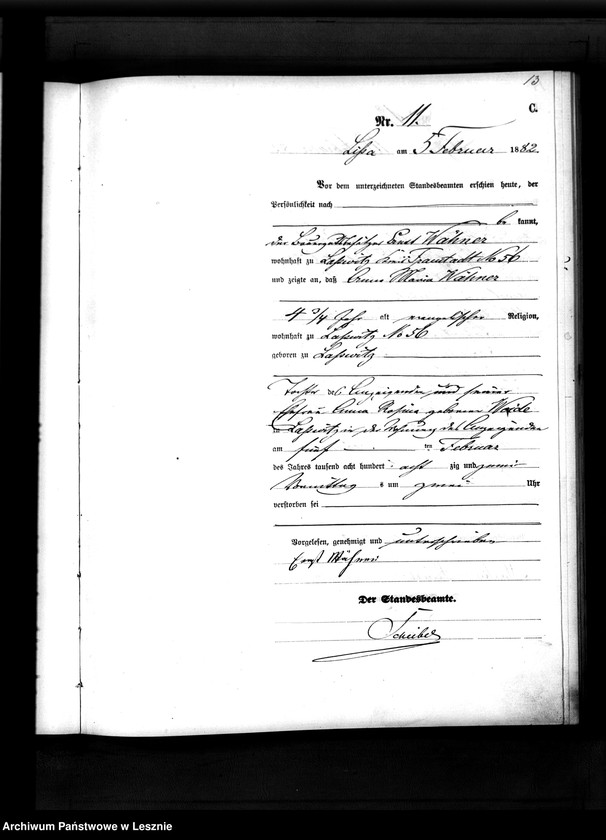 13
C.
Nr. 11.
Lissa am 5 Februar 1882.
Vor dem unterzeichneten Standesbeamten erschien heute, der
Persönlichkeit nach
be kannt,
der Bauergutsbesitzer Ernst Wähner
wohnhaft zu Laßwitz Kreis Fraustadt No 56
und zeigte an, daß Anna Maria Wähner
4 3/4 Jahr alt evangelischer Religion,
wohnhaft zu Laßwitz No 56
geboren zu Laßwitz
Tochter des Anzeigenden und seiner
Ehefrau Anna Rosina geborenen Weide
zu Laßwitz in der Wohnung des Anzeigenden
am fünf ten Februar
des Jahres tausend acht hundert acht zig und zwei
Vormittag s um zwei Uhr
verstorben sei
Vorgelesen, genehmigt und unterschrieben
Ernst Wähner
Der Standesbeamte.
Archiwum Państwowe w Lesznie